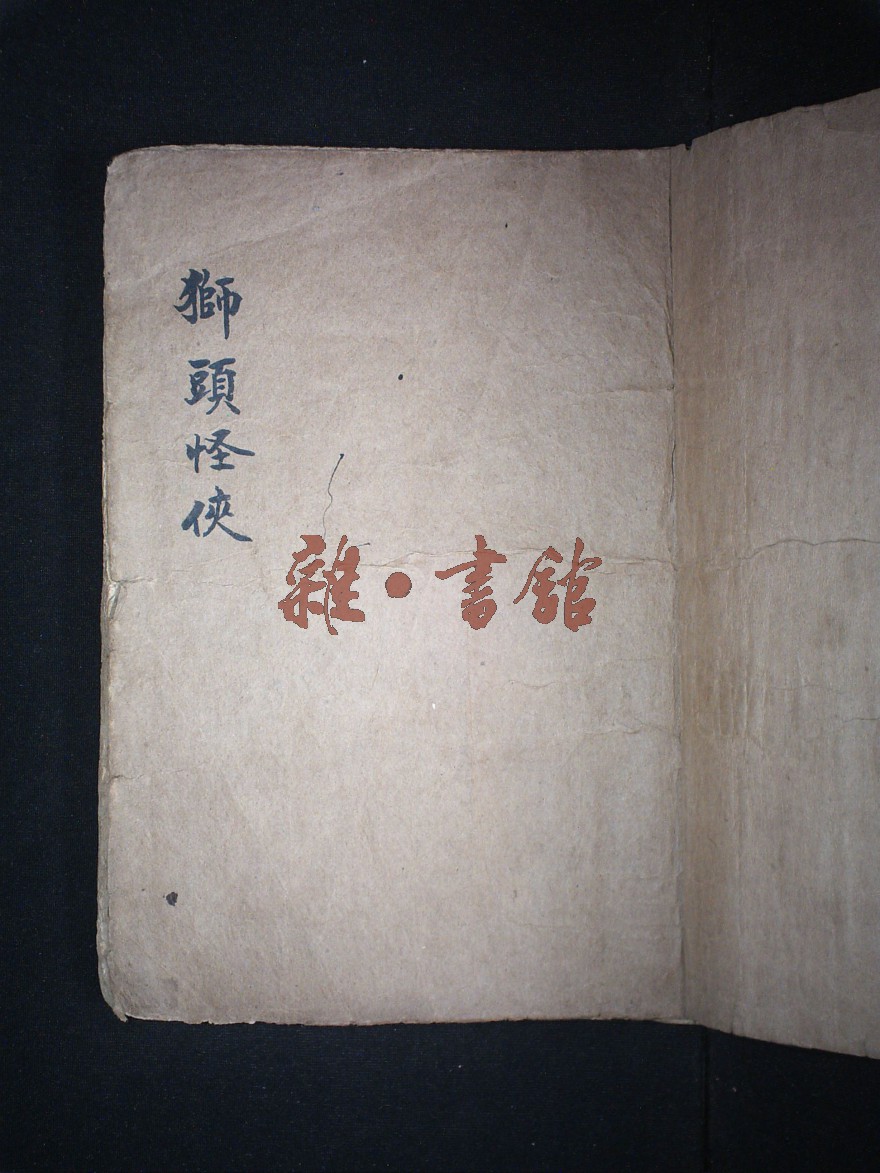 獅頭怪俠
雜·書館